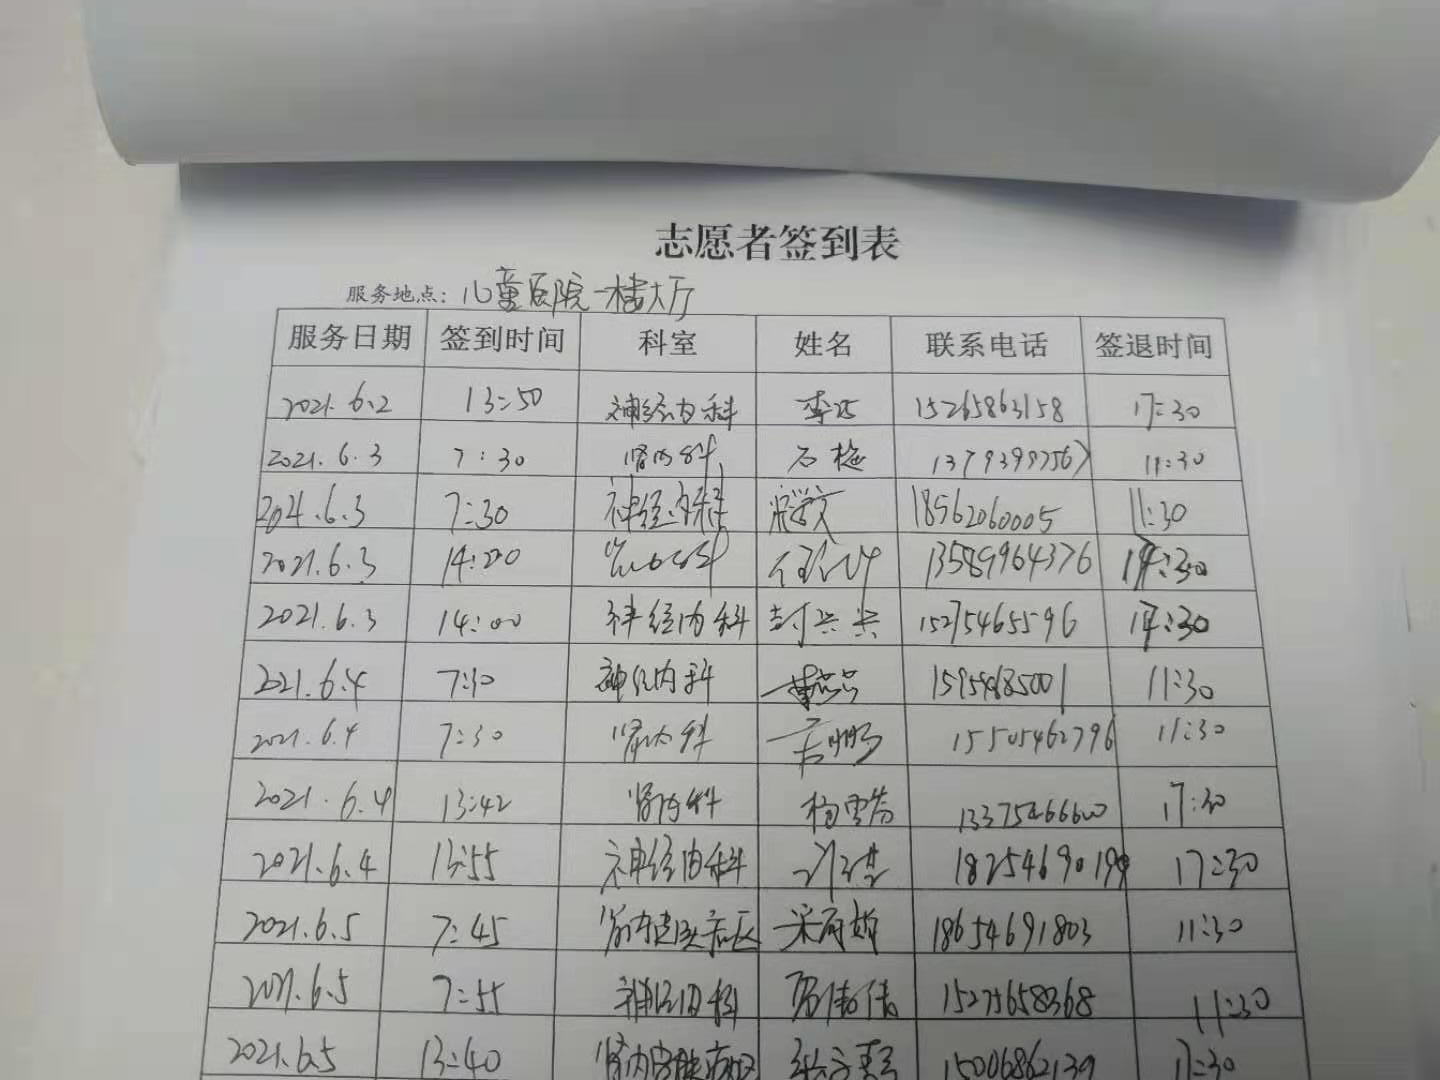 志愿者签到表
服务地点：儿童医院一楼大厅
服务日期 签到时间 科室 姓名 联系电话 签退时间
2021.6.2 13:50 神经内科 15265863158 17:30
2021.6.3 7:30 肾内科 石梅 11:30
2021.6.3 7:30 神经内科 18562060005 11:30
2021.6.3 14:00 13589964376 17:30
2021.6.3 14:00 神经内科 封兴兴 15275465596 17:30
2021.6.4 7:30 神经内科 11:30
2021.6.4 7:30 肾内科 15505462796 11:30
2021.6.4 13:42 肾内科 杨雪 13375466600 17:30
2021.6.4 13:55 神经内科 17:30
2021.6.5 7:45 18654691803 11:30
2021.6.5 7:55 神经内科 15275658368 11:30
2021.6.5 13:40 肾内皮肤病区 15006862139 17:30